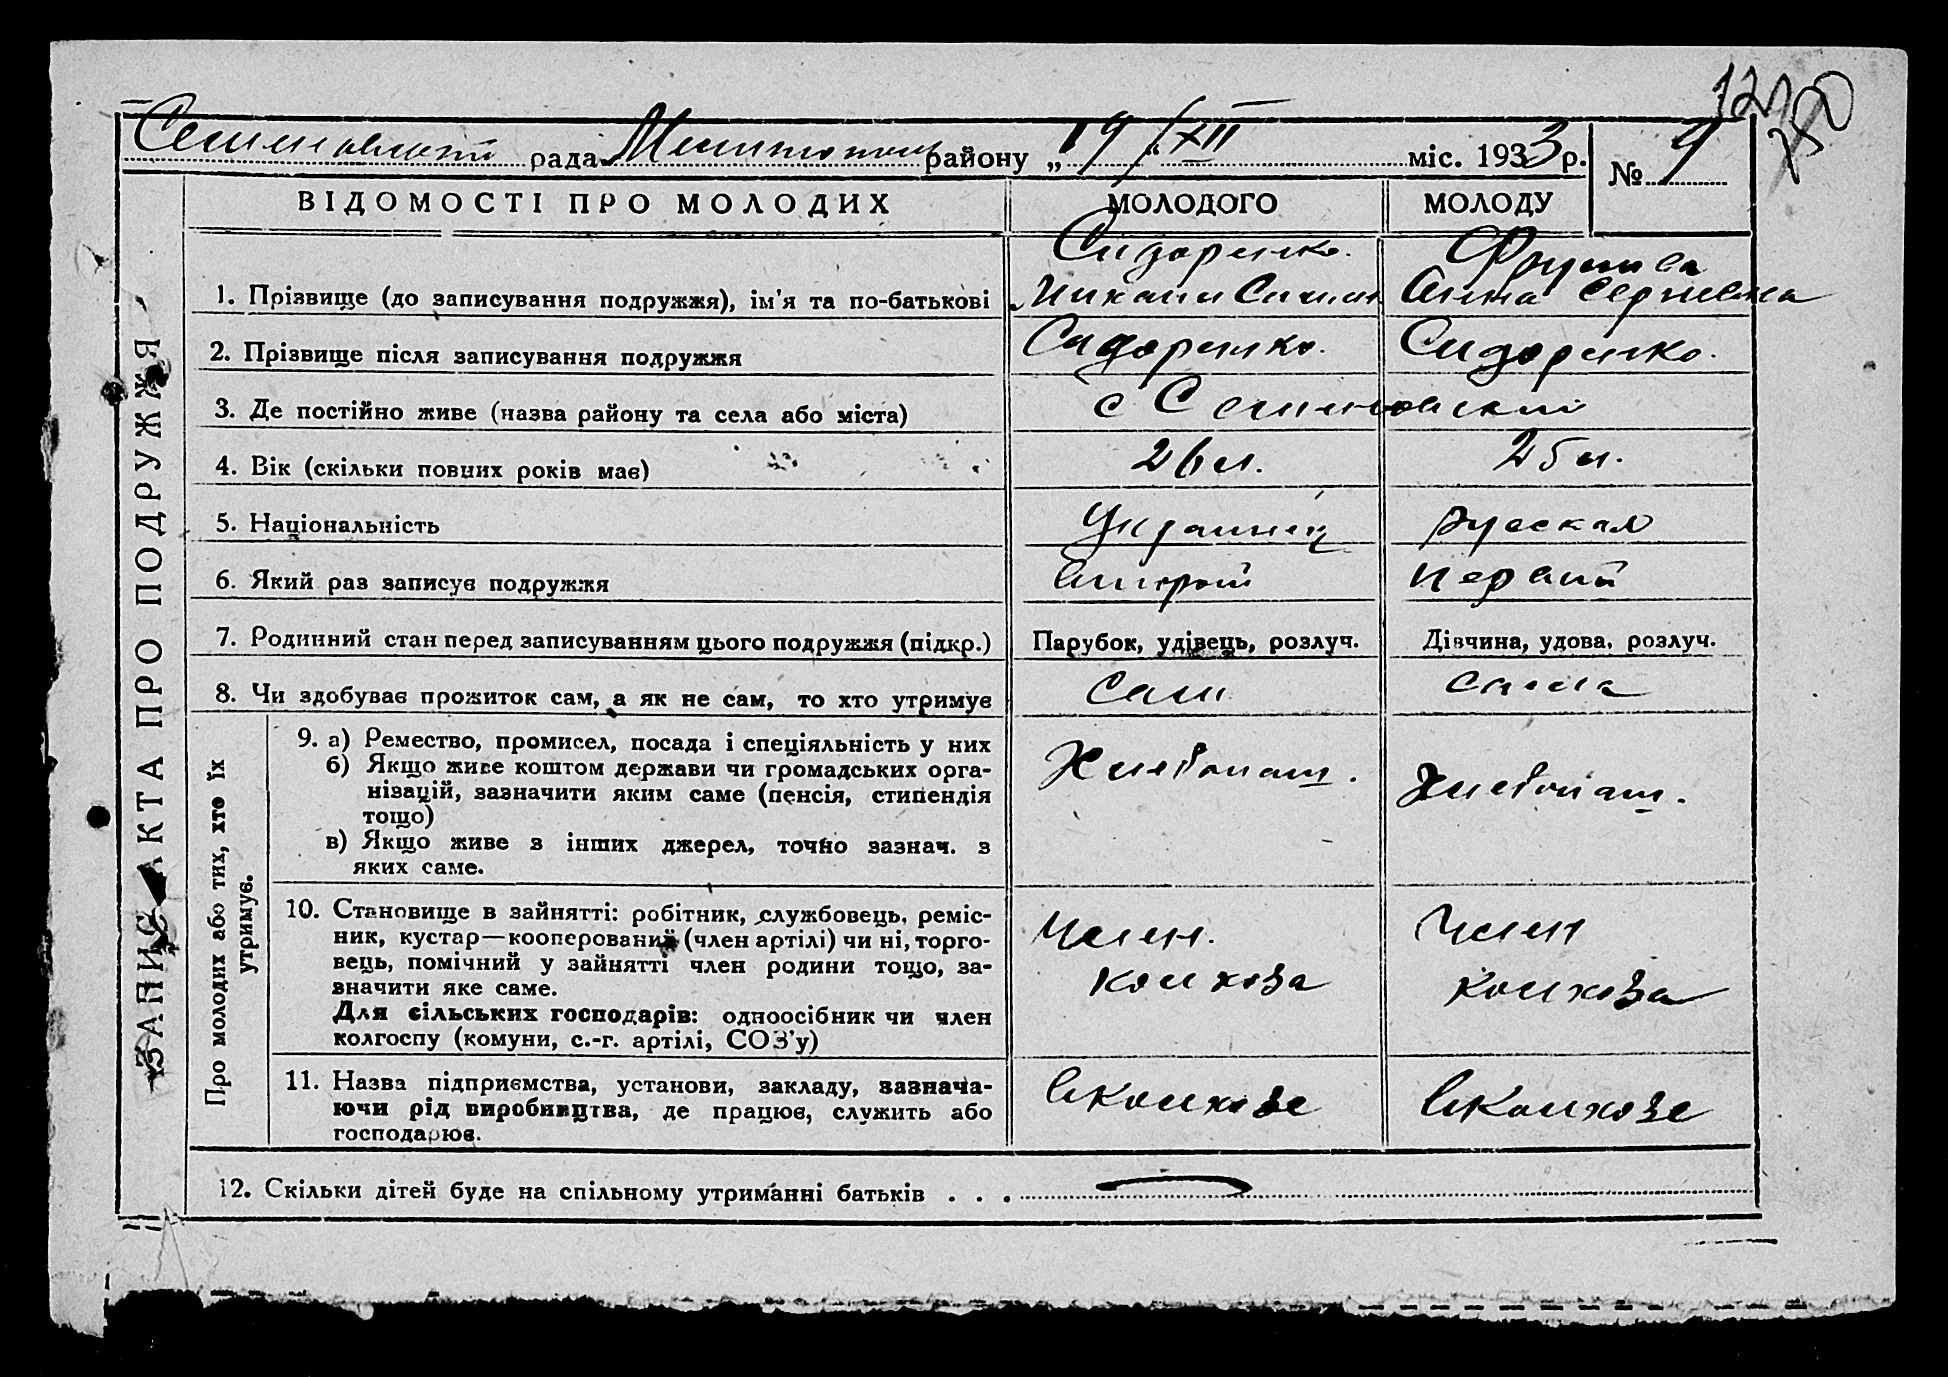 127
250
Семеновской рада Мелитополь району „19“ XII міс. 1933 р. № 9
ВІДОМОСТІ ПРО МОЛОДИХ МОЛОДОГО МОЛОДУ
ЗАПИС АКТА ПРО ПОДРУЖЖЯ
Сидоренко.
1. Прізвище (до записування подружжя), ім'я та по-батькові Михаил Семен Анна Сергиевна
2. Прізвище після записування подружжя Сидоренко. Сидоренко.
3. Де постійно живе (назва району та села або міста) с Семеновской
4. Вік (скільки повних років має) 26 л. 25 л.
5. Національність Украинец русская
6. Який раз записує подружжя второй первый
7. Родинний стан перед записуванням цього подружжя (підкр.) Парубок, удівець, розлуч. Дівчина, удова, розлуч.
8. Чи здобуває прожиток сам, а як не сам, то хто утримує сам сама
Про молодих або тих, хто їх
утримує.
9. а) Ремество, промисел, посада і спеціяльність у них Хлебопаш. Хлебопаш.
б) Якщо живе коштом держави чи громадських орга-
нізацій, зазначити яким саме (пенсія, стипендія
тощо)
в) Якщо живе з інших джерел, точно зазнач. з
яких саме.
10. Становище в зайнятті: робітник, службовець, реміс- Член. Член
ник, кустар—кооперований (член артілі) чи ні, торго-
вець, помічний у зайнятті член родини тощо, за- колхоза колхоза
значити яке саме.
Для сільських господарів: одноосібник чи член
колгоспу (комуни, с.-г. артілі, СОЗ'у)
11. Назва підприємства, установи, закладу, зазнача- в колхозе в колхозе
ючи рід виробництва, де працює, служить або
господарює.
12. Скільки дітей буде на спільному утриманні батьків . . .